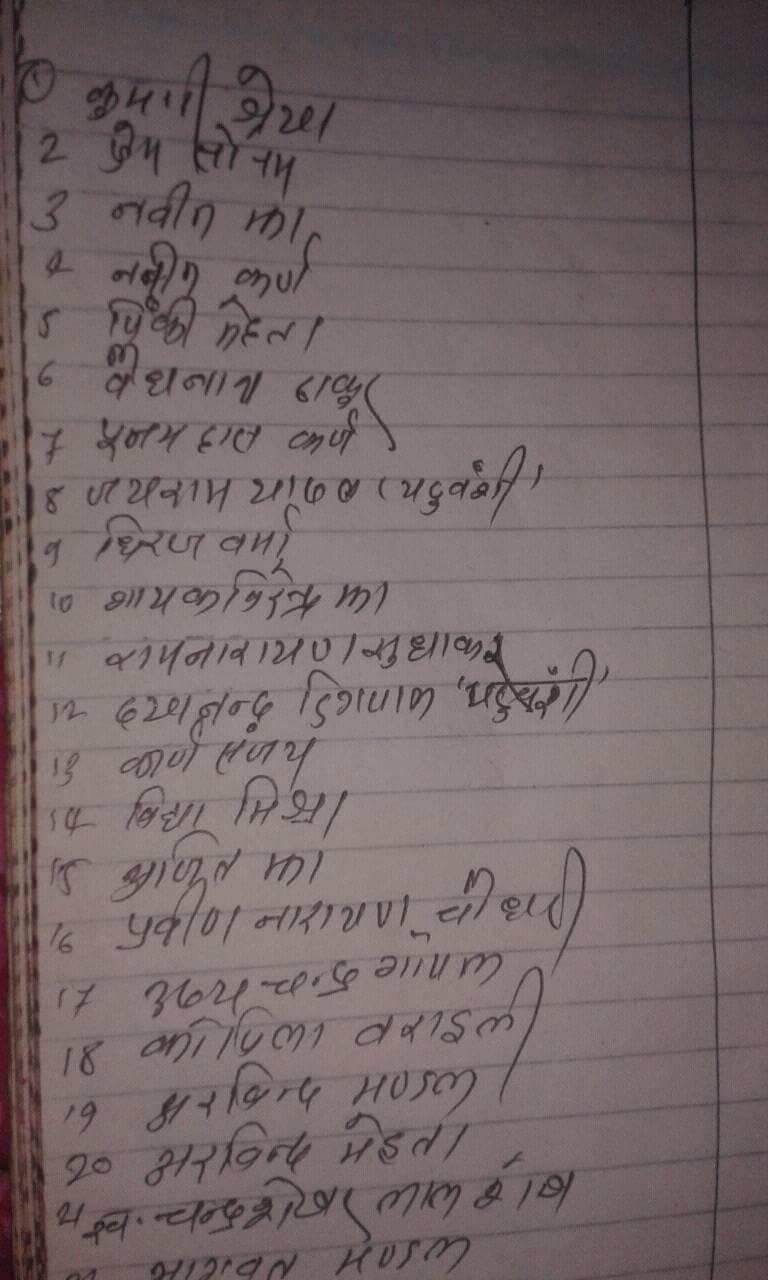 ① कुमारी श्रेया
2 प्रेम सोनम
3 नवीन झा
4 नवीन कर्ण
5 पिंकी मेहता
6 वैधनाथ ठाकुर
7 पुनम दास कर्ण
8 जयराम यादव (यदुवंशी)
9 धिरज वर्मा
10 गायक विरेन्द्र झा
11 रामनारायण सुधाकर
12 दयानन्द दिगपाल 'यदुवंशी'
13 कर्ण संजय
14 विद्या मिश्रा
15 अजित झा
16 प्रवीण नारायण चौधरी
17 उदय चन्द्र गोपाल
18 कोपिला वराइली
19 अरविन्द मण्डल
20 अरविन्द मेहता
21 स्व. चन्द्रशेखर लाल शेख
मण्डल